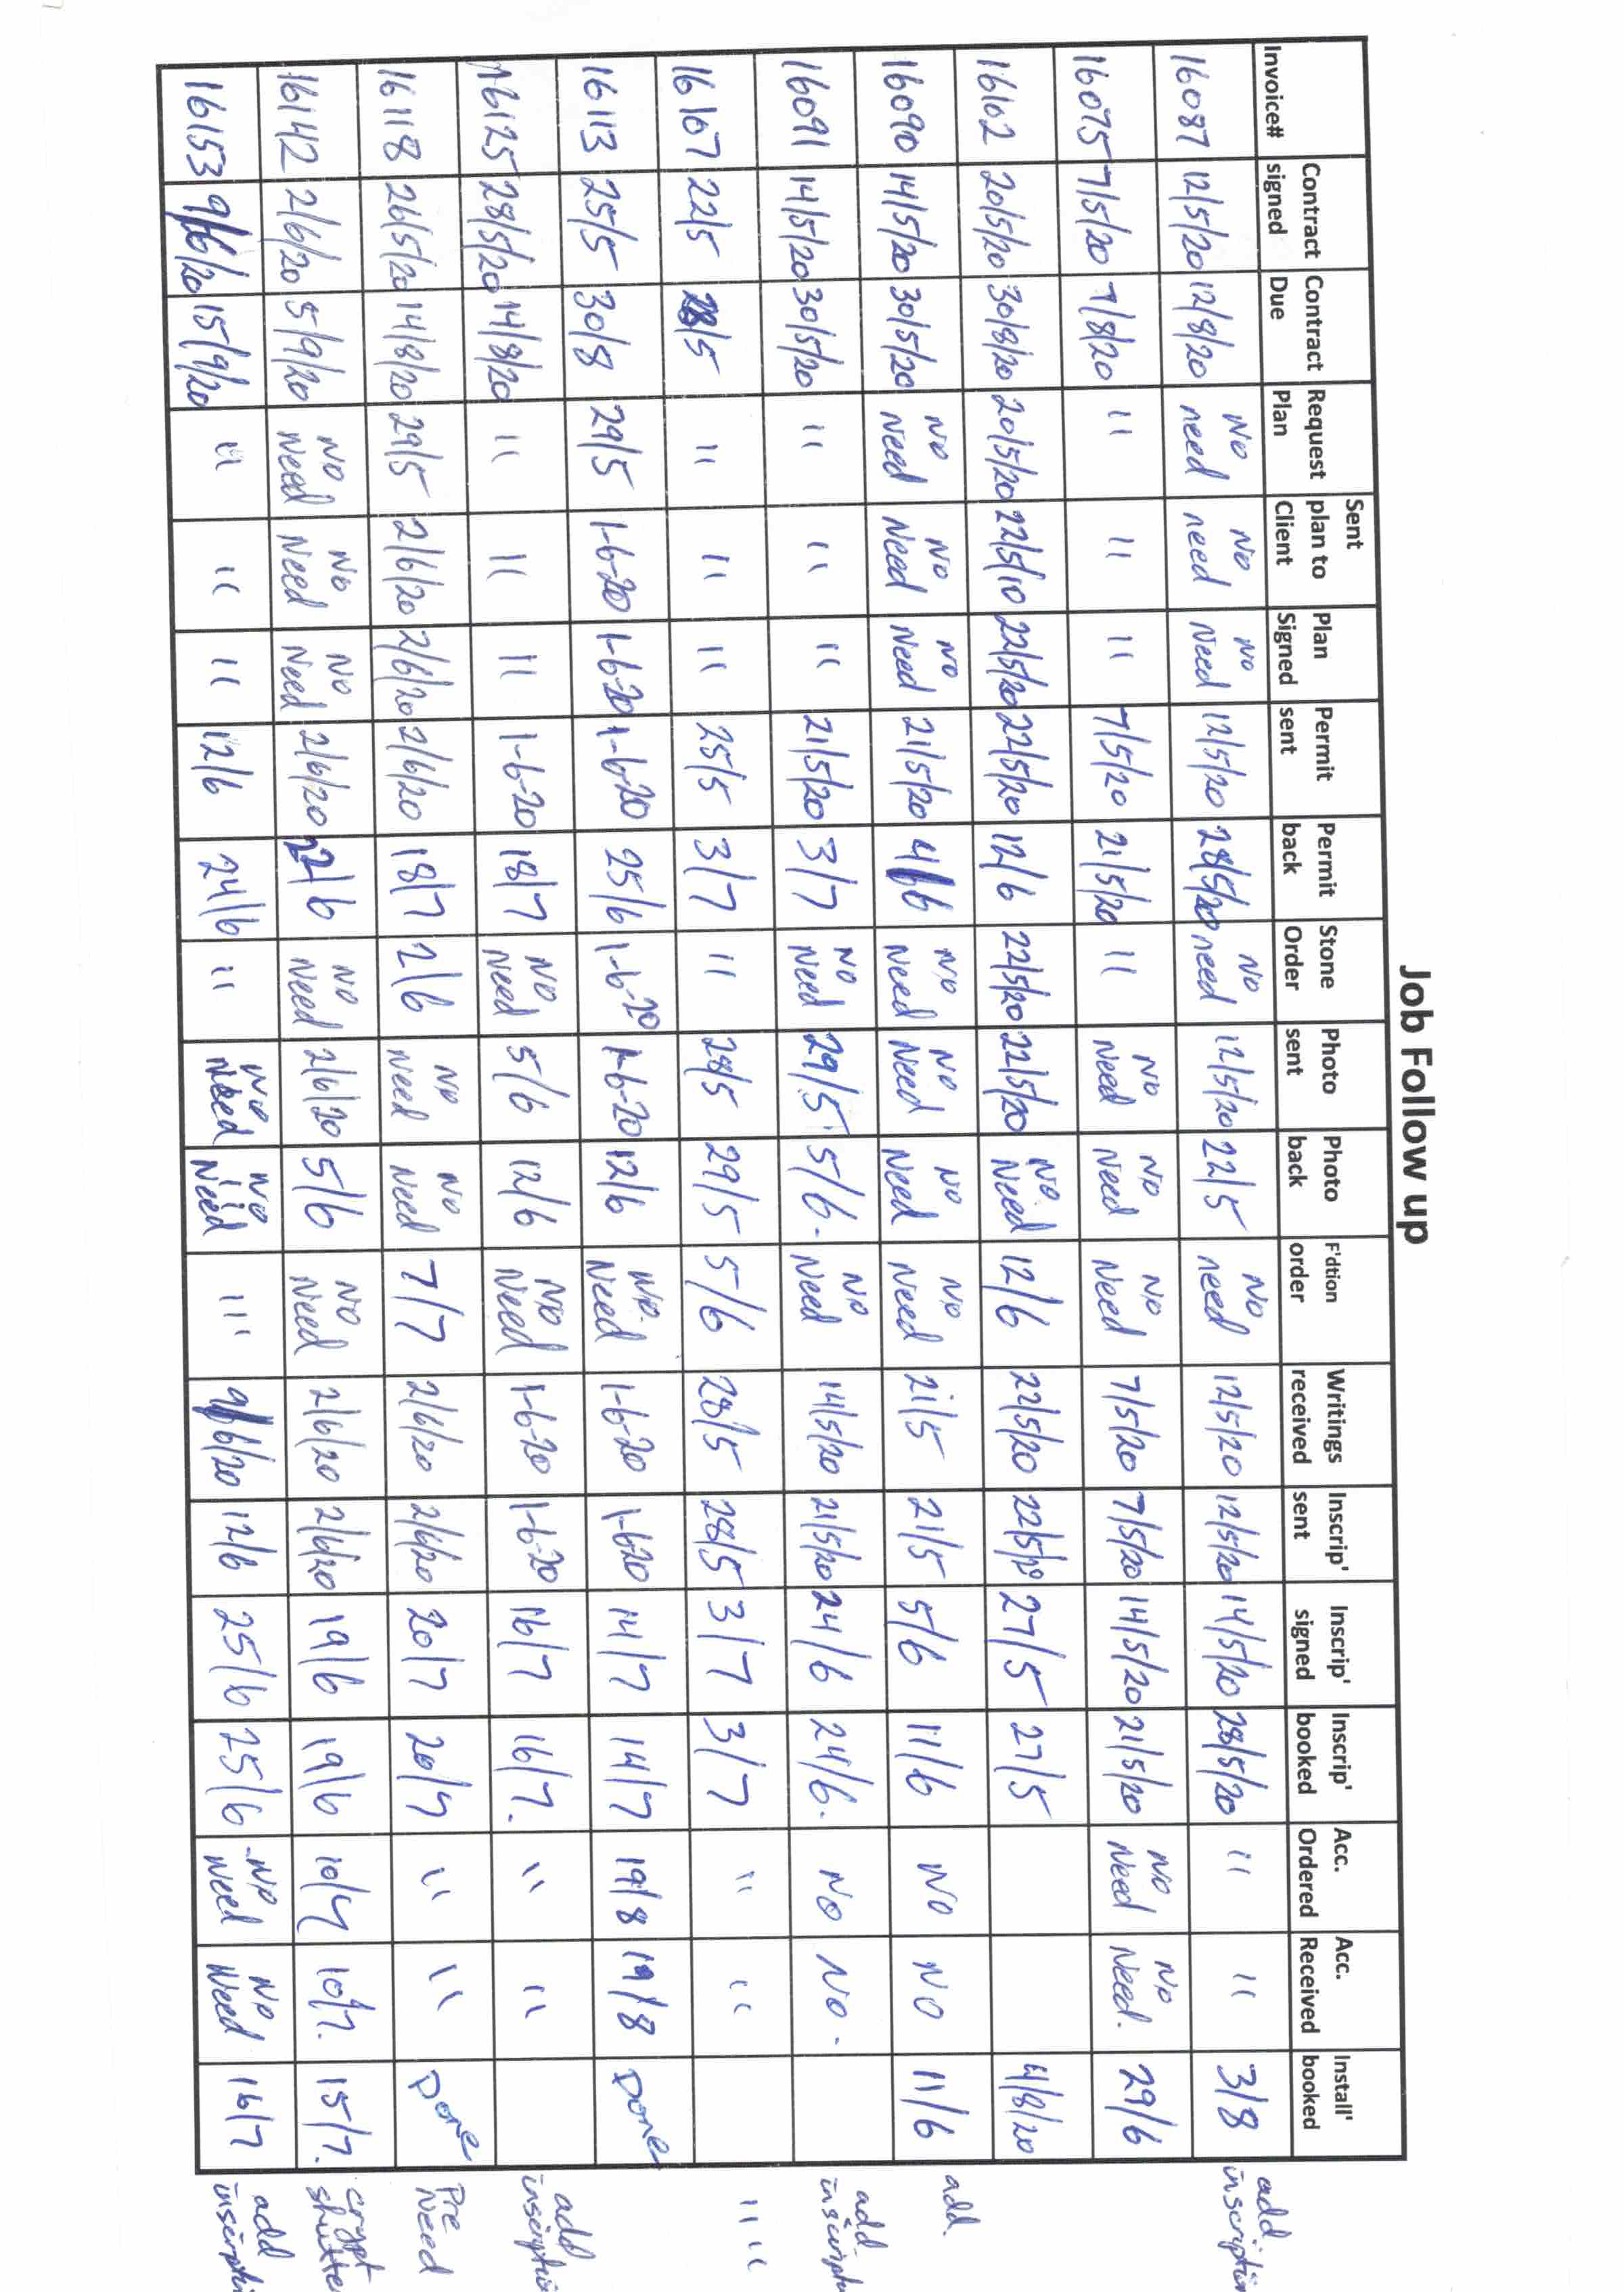 Job Follow up
Invoice# Contract signed Contract Due Request Plan Sent plan to Client Plan Signed Permit sent Permit back Stone Order Photo sent Photo back F'dtion order Writings received Inscrip' sent Inscrip' signed Inscrip' booked Acc. Ordered Acc. Received Install' booked
16087 12/5/20 12/8/20 No need No need No Need 12/5/20 28/5/20 No need 12/5/20 22/5 No need 12/5/20 12/5/20 14/5/20 28/5/20 " " 3/8 add inscription
16075 7/5/20 7/8/20 " " " 7/5/20 21/5/20 " No Need No Need No Need 7/5/20 7/5/20 14/5/20 21/5/20 No Need No Need. 29/6
16102 20/5/20 30/8/20 20/5/20 22/5/10 22/5/20 22/5/20 12/6 22/5/20 22/5/20 No Need 12/6 22/5/20 22/5/20 27/5 27/5 4/8/20
16090 14/5/20 30/5/20 No Need No Need No Need 21/5/20 4/6 No Need No Need No Need No Need 21/5 21/5 5/6 11/6 No No 11/6 add.
16091 14/5/20 30/5/20 " " " 21/5/20 3/7 No Need 29/5 5/6. No Need 14/5/20 21/5/20 24/6 24/6. No No. add inscript
16107 22/5 28/5 " " " 25/5 3/7 " 28/5 29/5 5/6 28/5 28/5 3/7 3/7 " " " "
16113 25/5 30/8 29/5 1-6-20 1-6-20 1-6-20 25/6 1-6-20 1-6-20 12/6 No. Need 1-6-20 1-6-20 14/7 14/7 19/8 19/8 Done
16125 28/5/20 14/8/20 " " " 1-6-20 18/7 No Need 5/6 12/6 No Need 1-6-20 1-6-20 16/7 16/7. " " add inscriptio
16118 26/5/20 14/8/20 29/5 2/6/20 2/6/20 2/6/20 18/7 2/6 No Need No Need 7/7 2/6/20 2/6/20 20/7 20/7 " " Done Pre Need
16142 2/6/20 5/9/20 No Need No Need No Need 2/6/20 22/6 No Need 2/6/20 5/6 No Need 2/6/20 2/6/20 19/6 19/6 10/7 10/7. 15/7. crypt shutte
16153 9/6/20 15/9/20 " " " 12/6 24/6 " No Need No Need " 9/6/20 12/6 25/6 25/6 No Need No Need 16/7 add inscripti